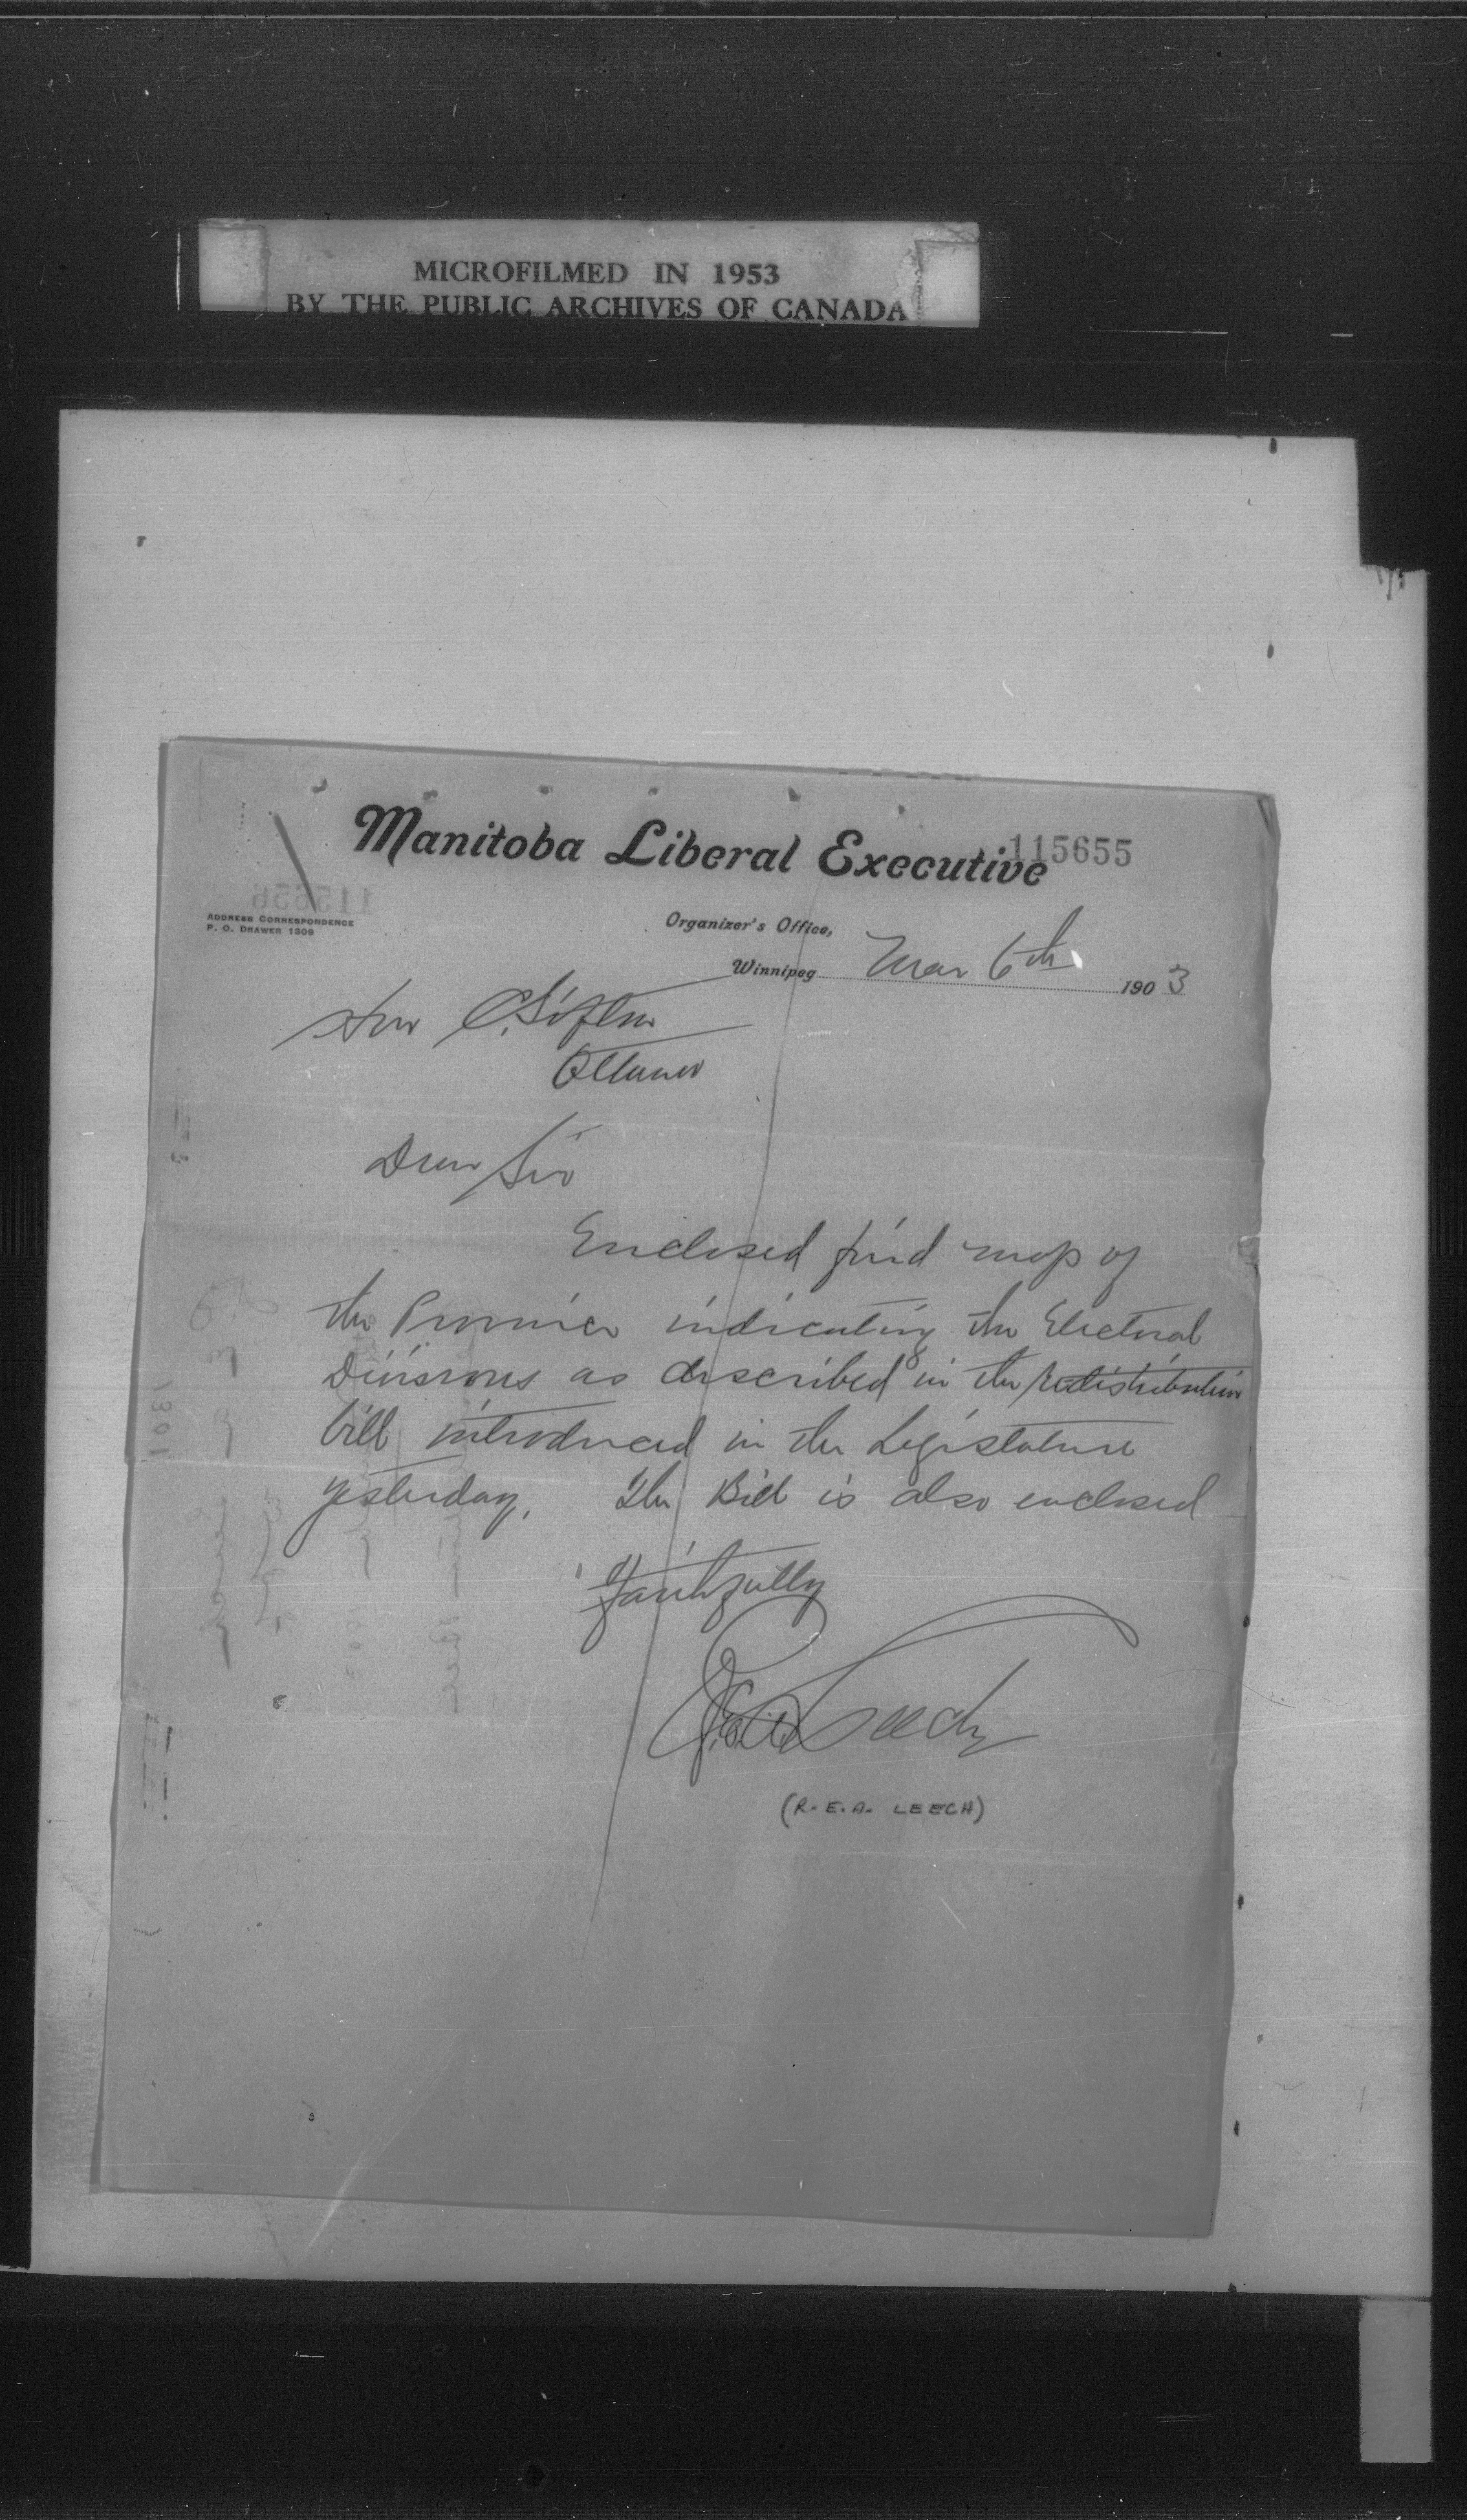 MICROFILMED IN 1953
BY THE PUBLIC ARCHIVES OF CANADA
Manitoba Liberal Executive
115655
ADDRESS CORRESPONDENCE
P. O. DRAWER 1309
Organizer's Office,
Winnipeg Mar 6th 1903
Hon C. Sifton
Ottawa
Dear Sir
Enclosed find map of
the Province indicating the Electoral
Divisions as described in the Redistribution
bill introduced in the Legislature
yesterday. The Bill is also enclosed
Faithfully
R.E.A. Leech
(R.E.A. LEECH)